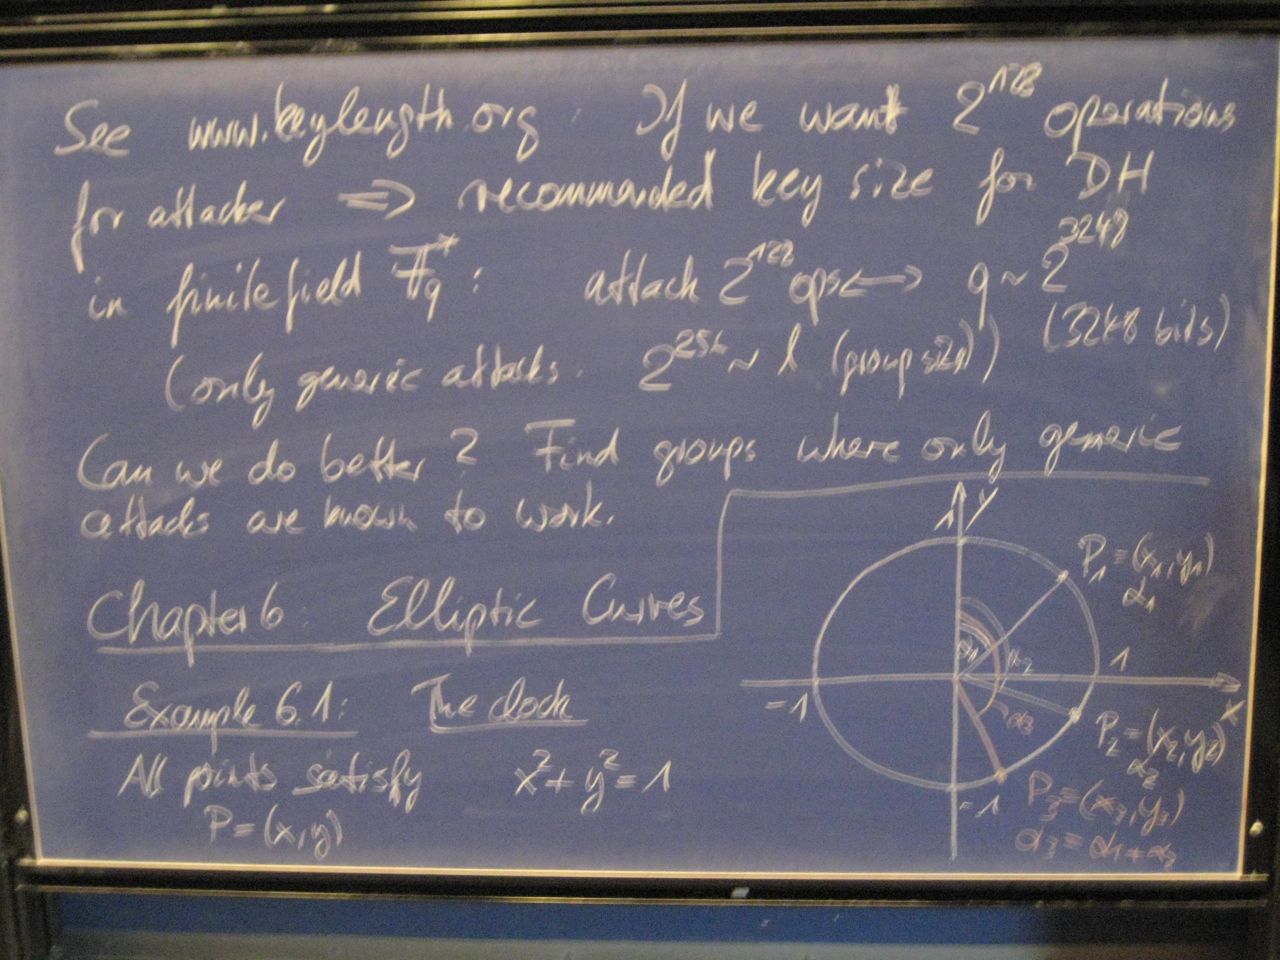 See www.keylength.org. If we want 2^128 operations
for attacker ⇒ recommended key size for DH
in finite field F_q^*: attack 2^128 ops ↔ q ~ 2^3248
(3248 bits)
(only generic attacks. 2^256 ~ l (group size))
Can we do better? Find groups where only generic
attacks are known to work.
Chapter 6: Elliptic Curves
Example 6.1: The clock
All points satisfy x²+y²=1
P=(x,y)
1 y
P₁=(x₁,y₁)
α₁
α₁ α₂
1
-1
x
α₃
P₂=(x₂,y₂)
α₂
-1
P₃=(x₃,y₃)
α₃=α₁+α₂